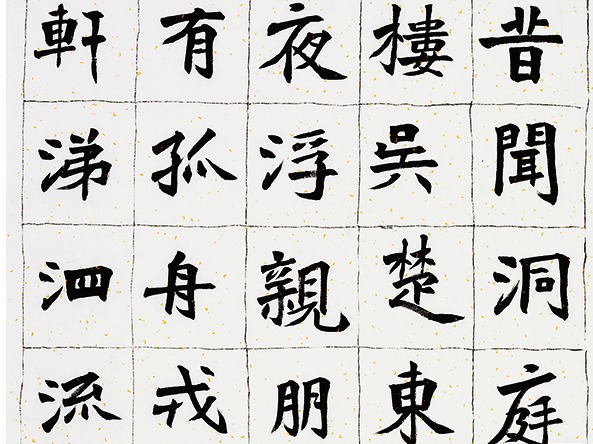 昔聞洞庭
樓吳楚東
夜浮親朋
有孤舟戎
軒涕泗流